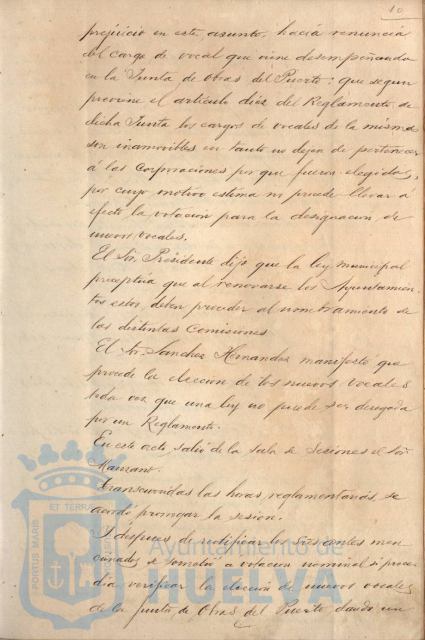 10
prejuicio en este asunto, hacía renuncia
del cargo de vocal que viene desempeñando
en la Junta de Obras del Puerto: que segun
previene el artículo diez del Reglamento de
dicha Junta los cargos de vocales de la misma
son inamovibles en tanto no dejen de pertenecer
á las Corporaciones por que fueron elegidos,
por cuyo motivo estima no puede llevar á
efecto la votacion para la designacion de
nuevos vocales.
El Sr. Presidente dijo que la ley municipal
preceptúa que al renovarse los Ayuntamien-
tos estos deben proceder al nombramiento de
las distintas Comisiones
El Sr. Sanchez Hernandez manifestó que
procede la eleccion de los nuevos vocales
toda vez que una ley no puede ser derogada
por un Reglamento.
En este acto salió de la sala de Sesiones el Sor.
Manzano.
Transcurridas las horas reglamentarias se
acordó prorrogar la sesion.
Y despues de rectificar los Sres antes men-
cionados se sometió a votacion nominal si proce-
día verificar la eleccion de nuevos vocales
de la junta de Obras del Puerto dando un
PORTUS MARIS ET TERRAE
Ayuntamiento de
HUELVA